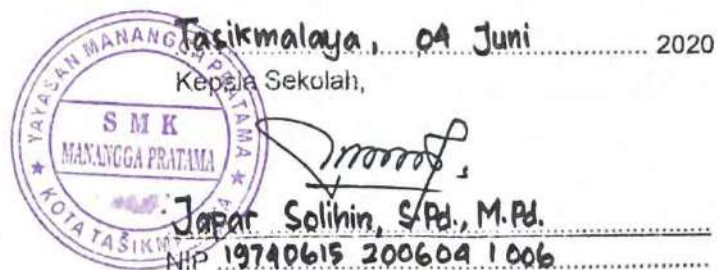 Tasikmalaya, 04 Juni 2020
Kepala Sekolah,
YAYASAN MANANGGA PRATAMA
SMK
MANANGGA PRATAMA
KOTA TASIKMALAYA
Japar Solihin, S.Pd., M.Pd.
NIP 19740615 200604 1 006